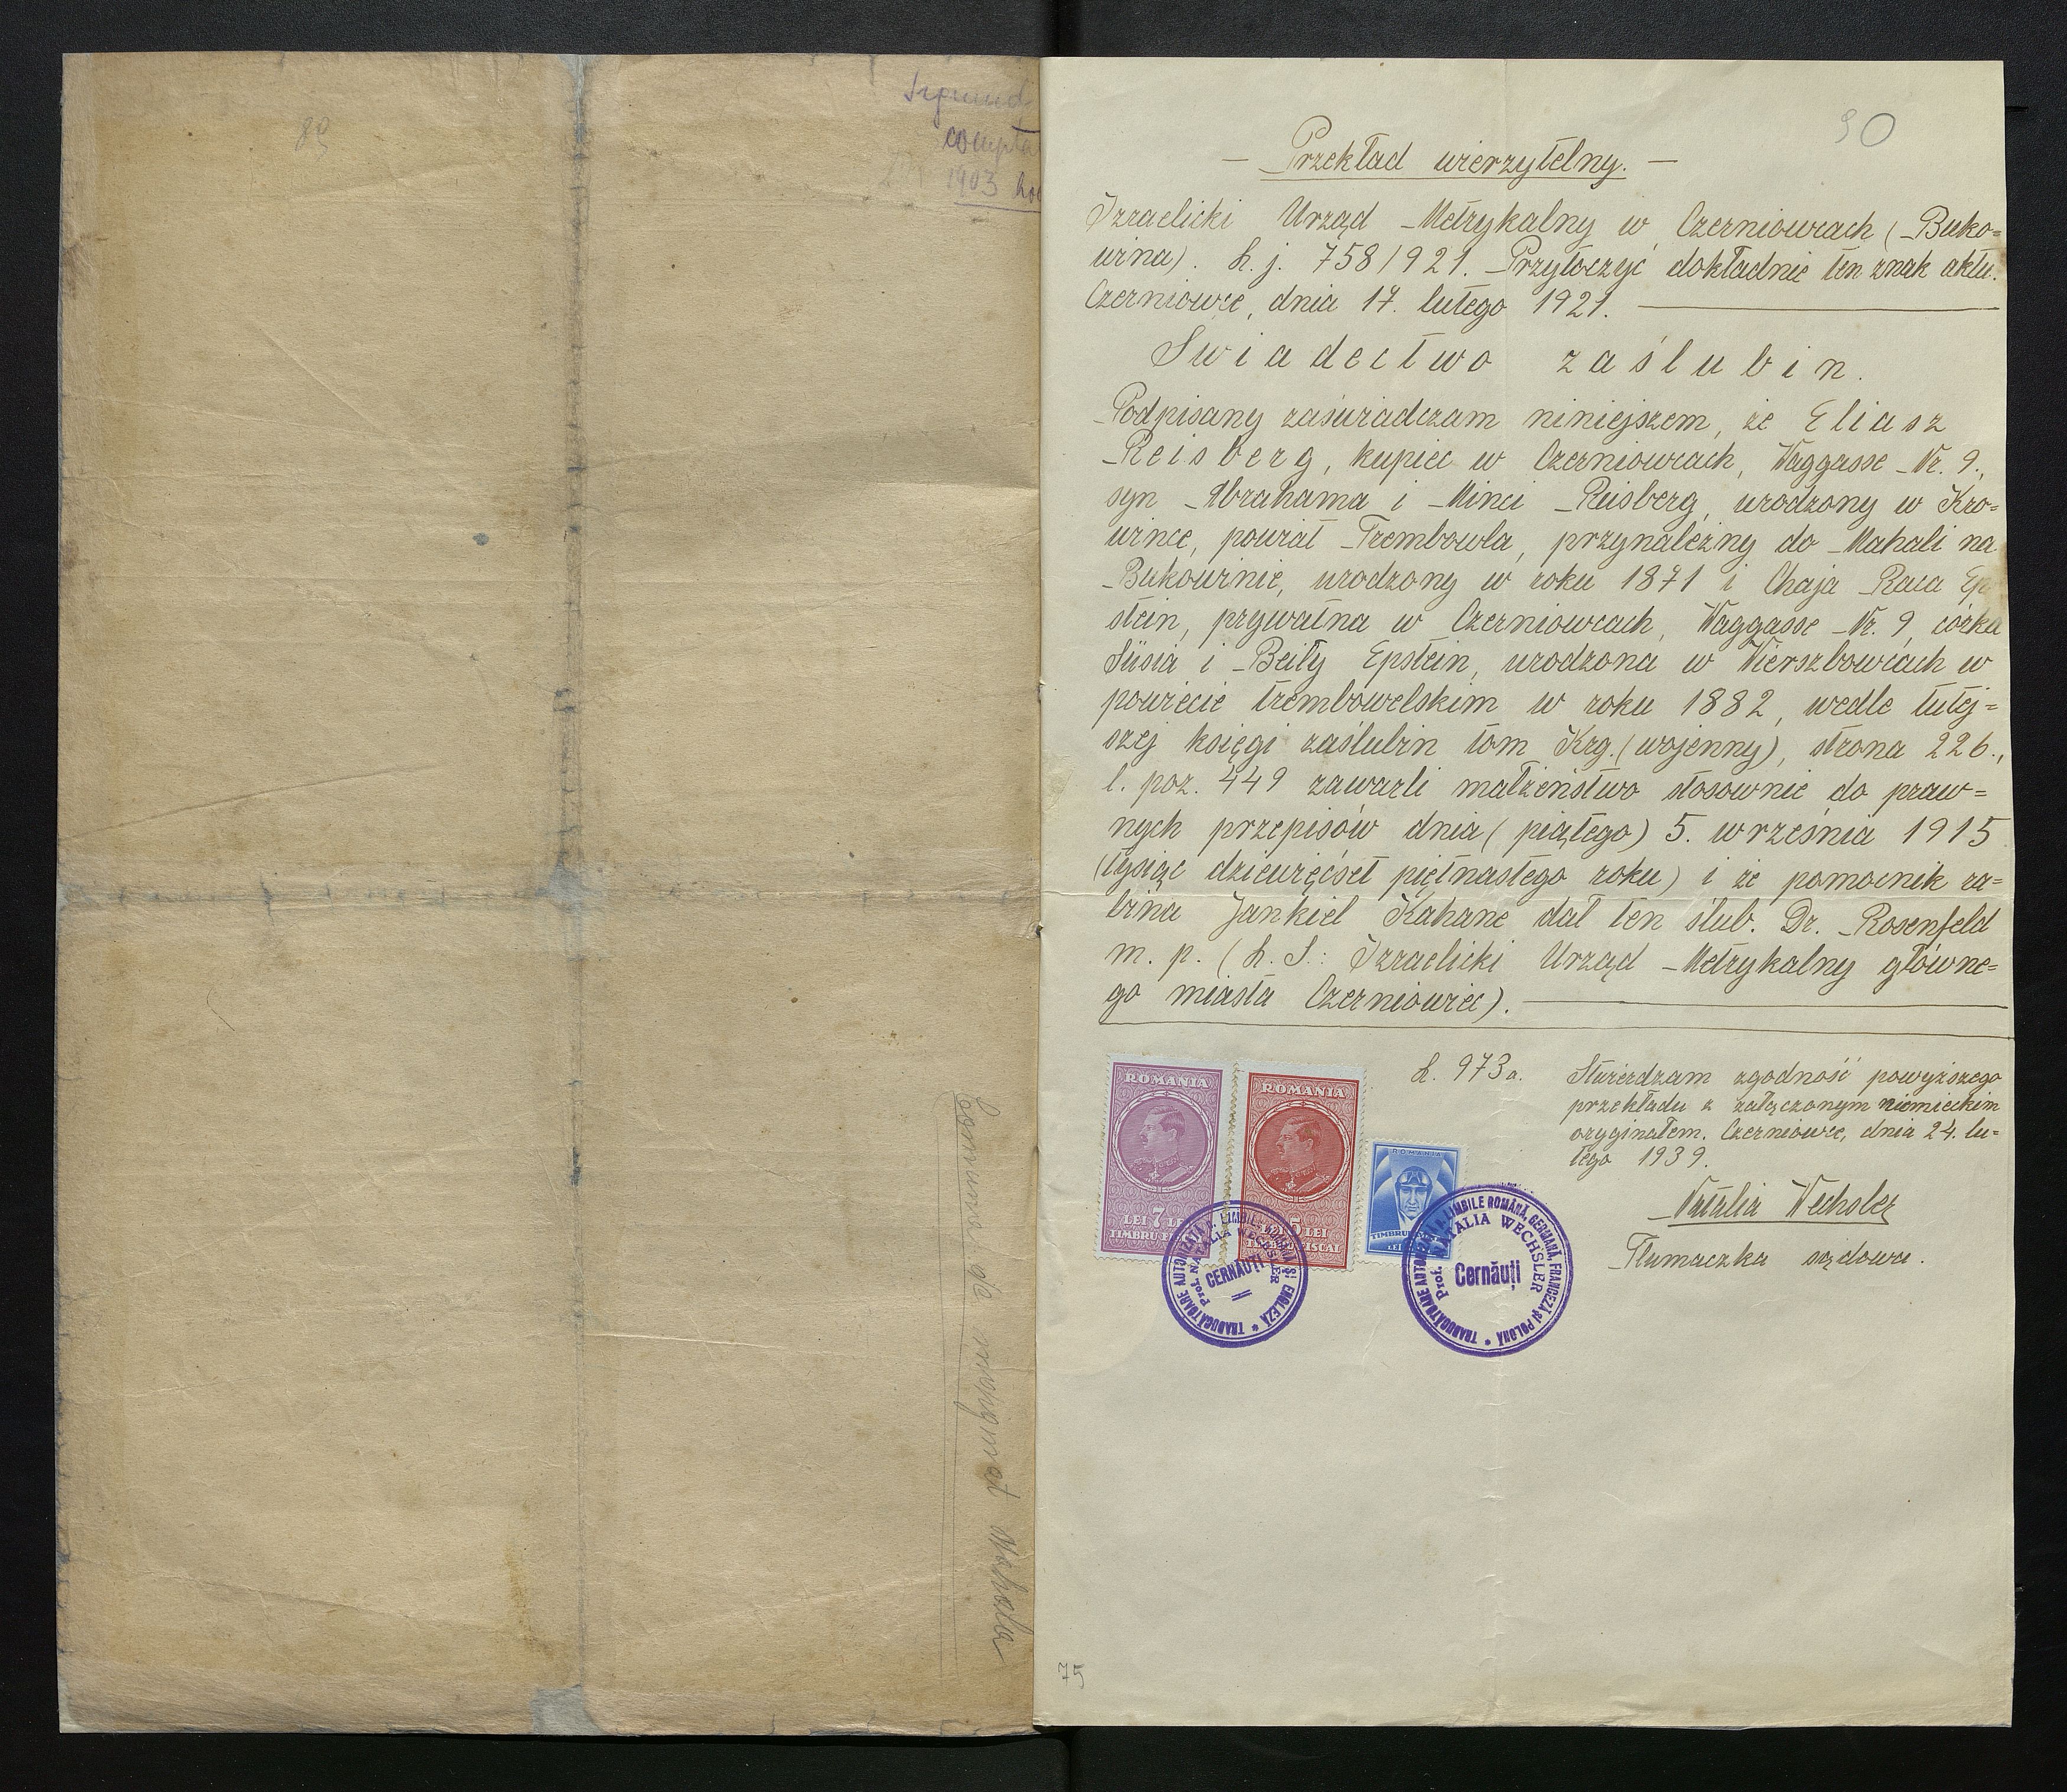 89
compta
1903
Comuna de imigrat Mahala
90
— Przekład wierzytelny. —
Izraelicki Urząd Metrykalny w Czerniowcach (Buko=
wina). L. j. 758/921. Przytoczyć dokładnie ten znak aktu.
Czerniowce, dnia 17. lutego 1921.
Świadectwo zaślubin.
Podpisany zaświadczam niniejszem, że Eliasz
Reisberg, kupiec w Czerniowcach, Waggasse Nr. 9.,
syn Abrahama i Minci Reisberg, urodzony w Kro=
wince, powiat Trembowla, przynależny do Mahali na
Bukowinie, urodzony w roku 1871 i Chaja Raca Ep
stein, prywatna w Czerniowcach, Waggasse Nr. 9, córka
Süsia i Beily Epstein, urodzona w Wierszbowcach w
powiecie trembowelskim w roku 1882, wedle tutej=
szej księgi zaślubin tom Krg. (wojenny), strona 226.,
l. poz. 449 zawarli małżeństwo stosownie do praw=
nych przepisów dnia (piątego) 5. września 1915
(tysiąc dziewięćset piętnastego roku) i że pomocnik ra=
bina Jankiel Kahane dał ten ślub. Dr. Rosenfeld
m. p. (L. S.: Izraelicki Urząd Metrykalny główne=
go miasta Czerniowiec).
L. 973a.
Stwierdzam zgodność powyższego
przekładu z załączonym niemieckim
oryginałem. Czerniowce, dnia 24. lu=
tego 1939.
Natalia Wechsler
Tłumaczka sądowa.
ROMANIA
LEI 7 LEI
TIMBRU FISCAL
ROMANIA
5 LEI
TIMBRU FISCAL
ROMANIA
TIMBRU
LEI
TRADUCĂTOARE AUTORIZATĂ pt. LIMBILE ROMÂNĂ ȘI ENGLEZĂ
Prof. NATALIA WECHSLER
CERNĂUȚI
TRADUCĂTOARE AUTORIZATĂ pt. LIMBILE ROMÂNĂ, GERMANĂ, FRANCEZĂ și POLONĂ
Prof. NATALIA WECHSLER
Cernăuți
75